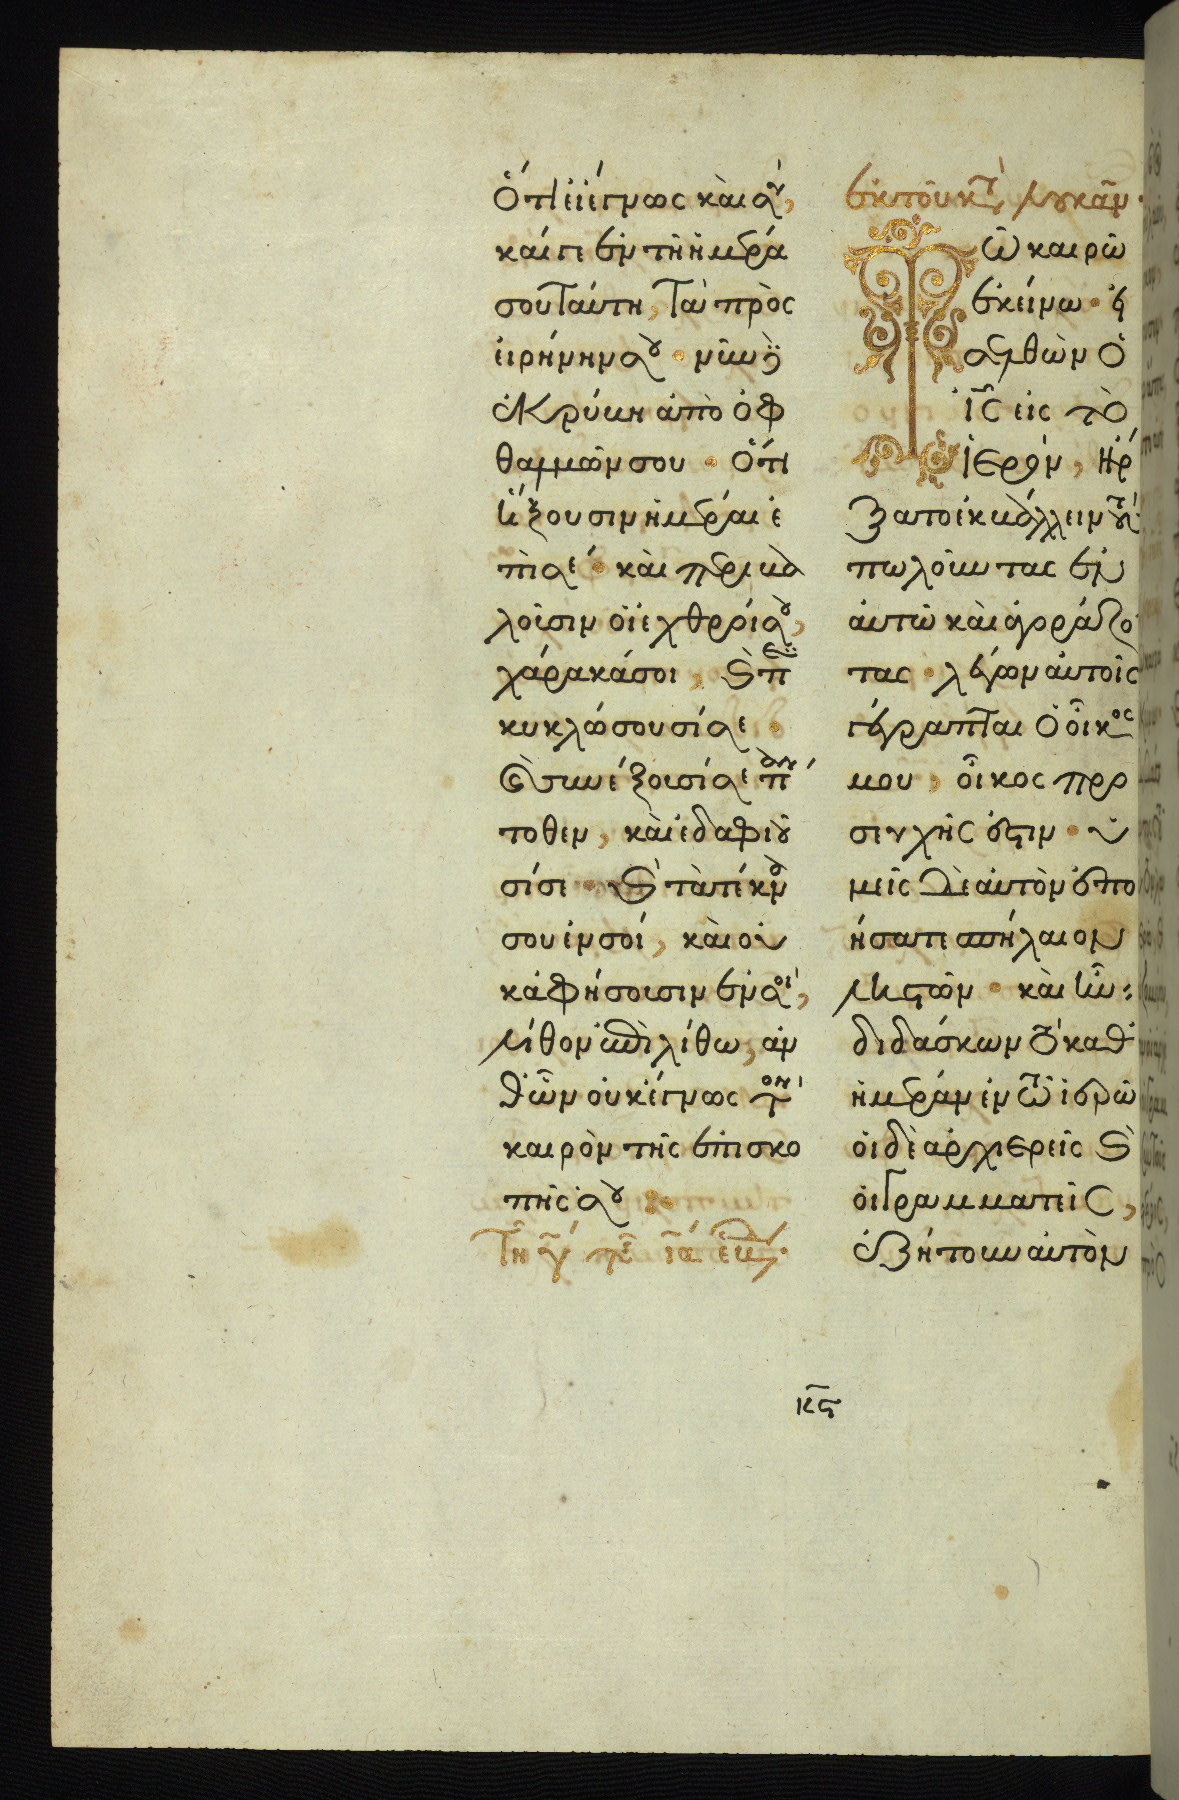 Ὅτι εἰ ἔγνως καὶ σύ,
καίγε ἐν τῇ ἡμέρα
σου ταύτη, τὰ πρὸς
εἰρήνην σου · νῦν δὲ
ἐκρύβη ἀπὸ ὀφ
θαλμῶν σου · Ὅτι
ἥξουσιν ἡμέραι ἐ
πὶ σέ · καὶ περιβα
λοῦσιν οἱ ἐχθροί σου,
χάρακά σοι, καὶ περι
κυκλώσουσί σε ·
καὶ συνέξουσί σε πάν
τοθεν, καὶ ἐδαφιοῦ
σί σε · καὶ τὰ τέκνα
σου ἐν σοί, καὶ οὐ
κ ἀφήσουσιν ἐν σοί,
λίθον ἐπὶ λίθω, ἀν
θ' ὧν οὐκ ἔγνως τὸν
καιρὸν τῆς ἐπισκο
πῆς σου ·
Τῇ γ̄ τῆς ῑᾱ ἑβδ ·
Ἐκ τοῦ κατὰ Λουκᾶν ·
Τῶ καιρῶ
ἐκείνω · εἰ
σελθὼν ὁ
ῑς̄ εἰς τὸ
ἱερὸν, ἤρ
ξατο ἐκβάλλειν τοὺς
πωλοῦντας ἐν
αὐτῶ καὶ ἀγοράζο
τας · λέγων αὐτοῖς
γέγραπται ὁ οἶκος
μου, οἶκος προ
σευχῆς ἐστιν · ὑ
μεῖς δὲ αὐτὸν ἐπο
ήσατε σπήλαιον
ληστῶν · καὶ ἦν
διδάσκων τὸ καθ
ἡμέραν ἐν τῶ ἱερῶ
οἱ δὲ ἀρχιερεῖς καὶ
οἱ γραμματεῖς,
ἐζήτουν αὐτὸν
κ̄ϛ̄